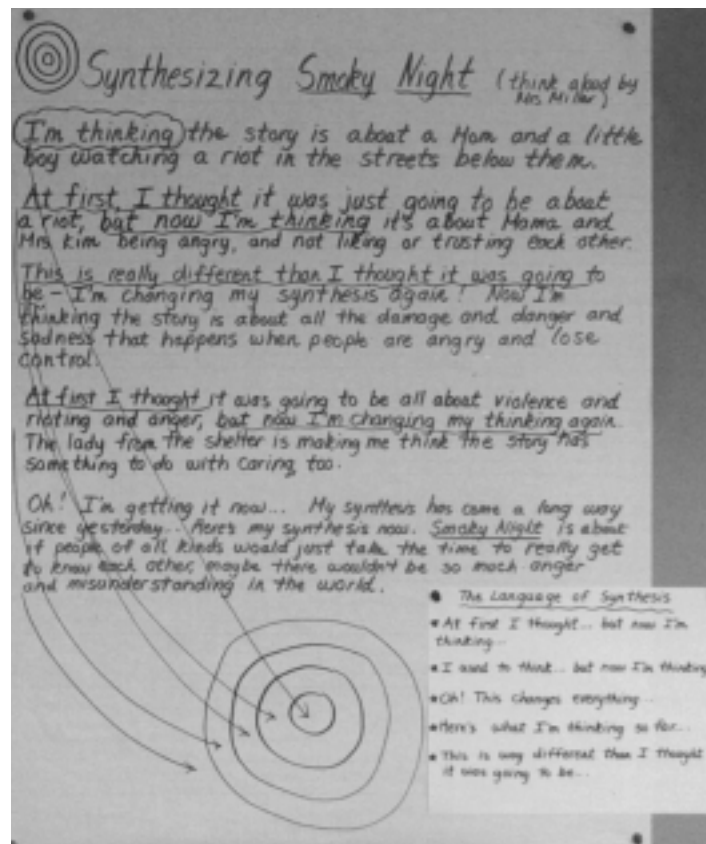 Synthesizing Smoky Night (think aloud by
Mrs Miller)
I'm thinking the story is about a Mom and a little
boy watching a riot in the streets below them.
At first, I thought it was just going to be about
a riot, but now I'm thinking it's about Mama and
Mrs Kim being angry, and not liking or trusting each other.
This is really different than I thought it was going to
be - I'm changing my synthesis again! Now I'm
thinking the story is about all the damage and danger and
sadness that happens when people are angry and lose
control.
At first I thought it was going to be all about violence and
rioting and anger, but now I'm changing my thinking again.
The lady from the shelter is making me think the story has
something to do with caring, too.
Oh! I'm getting it now... My synthesis has come a long way
since yesterday... Here's my synthesis now. Smoky Night is about
if people of all kinds would just take the time to really get
to know each other, maybe there wouldn't be so much anger
and misunderstanding in the world.
The Language of Synthesis
• At first I thought... but now I'm
thinking...
• I used to think... but now I'm thinking
• Oh! This changes everything...
• Here's what I'm thinking so far...
• This is way different than I thought
it was going to be...